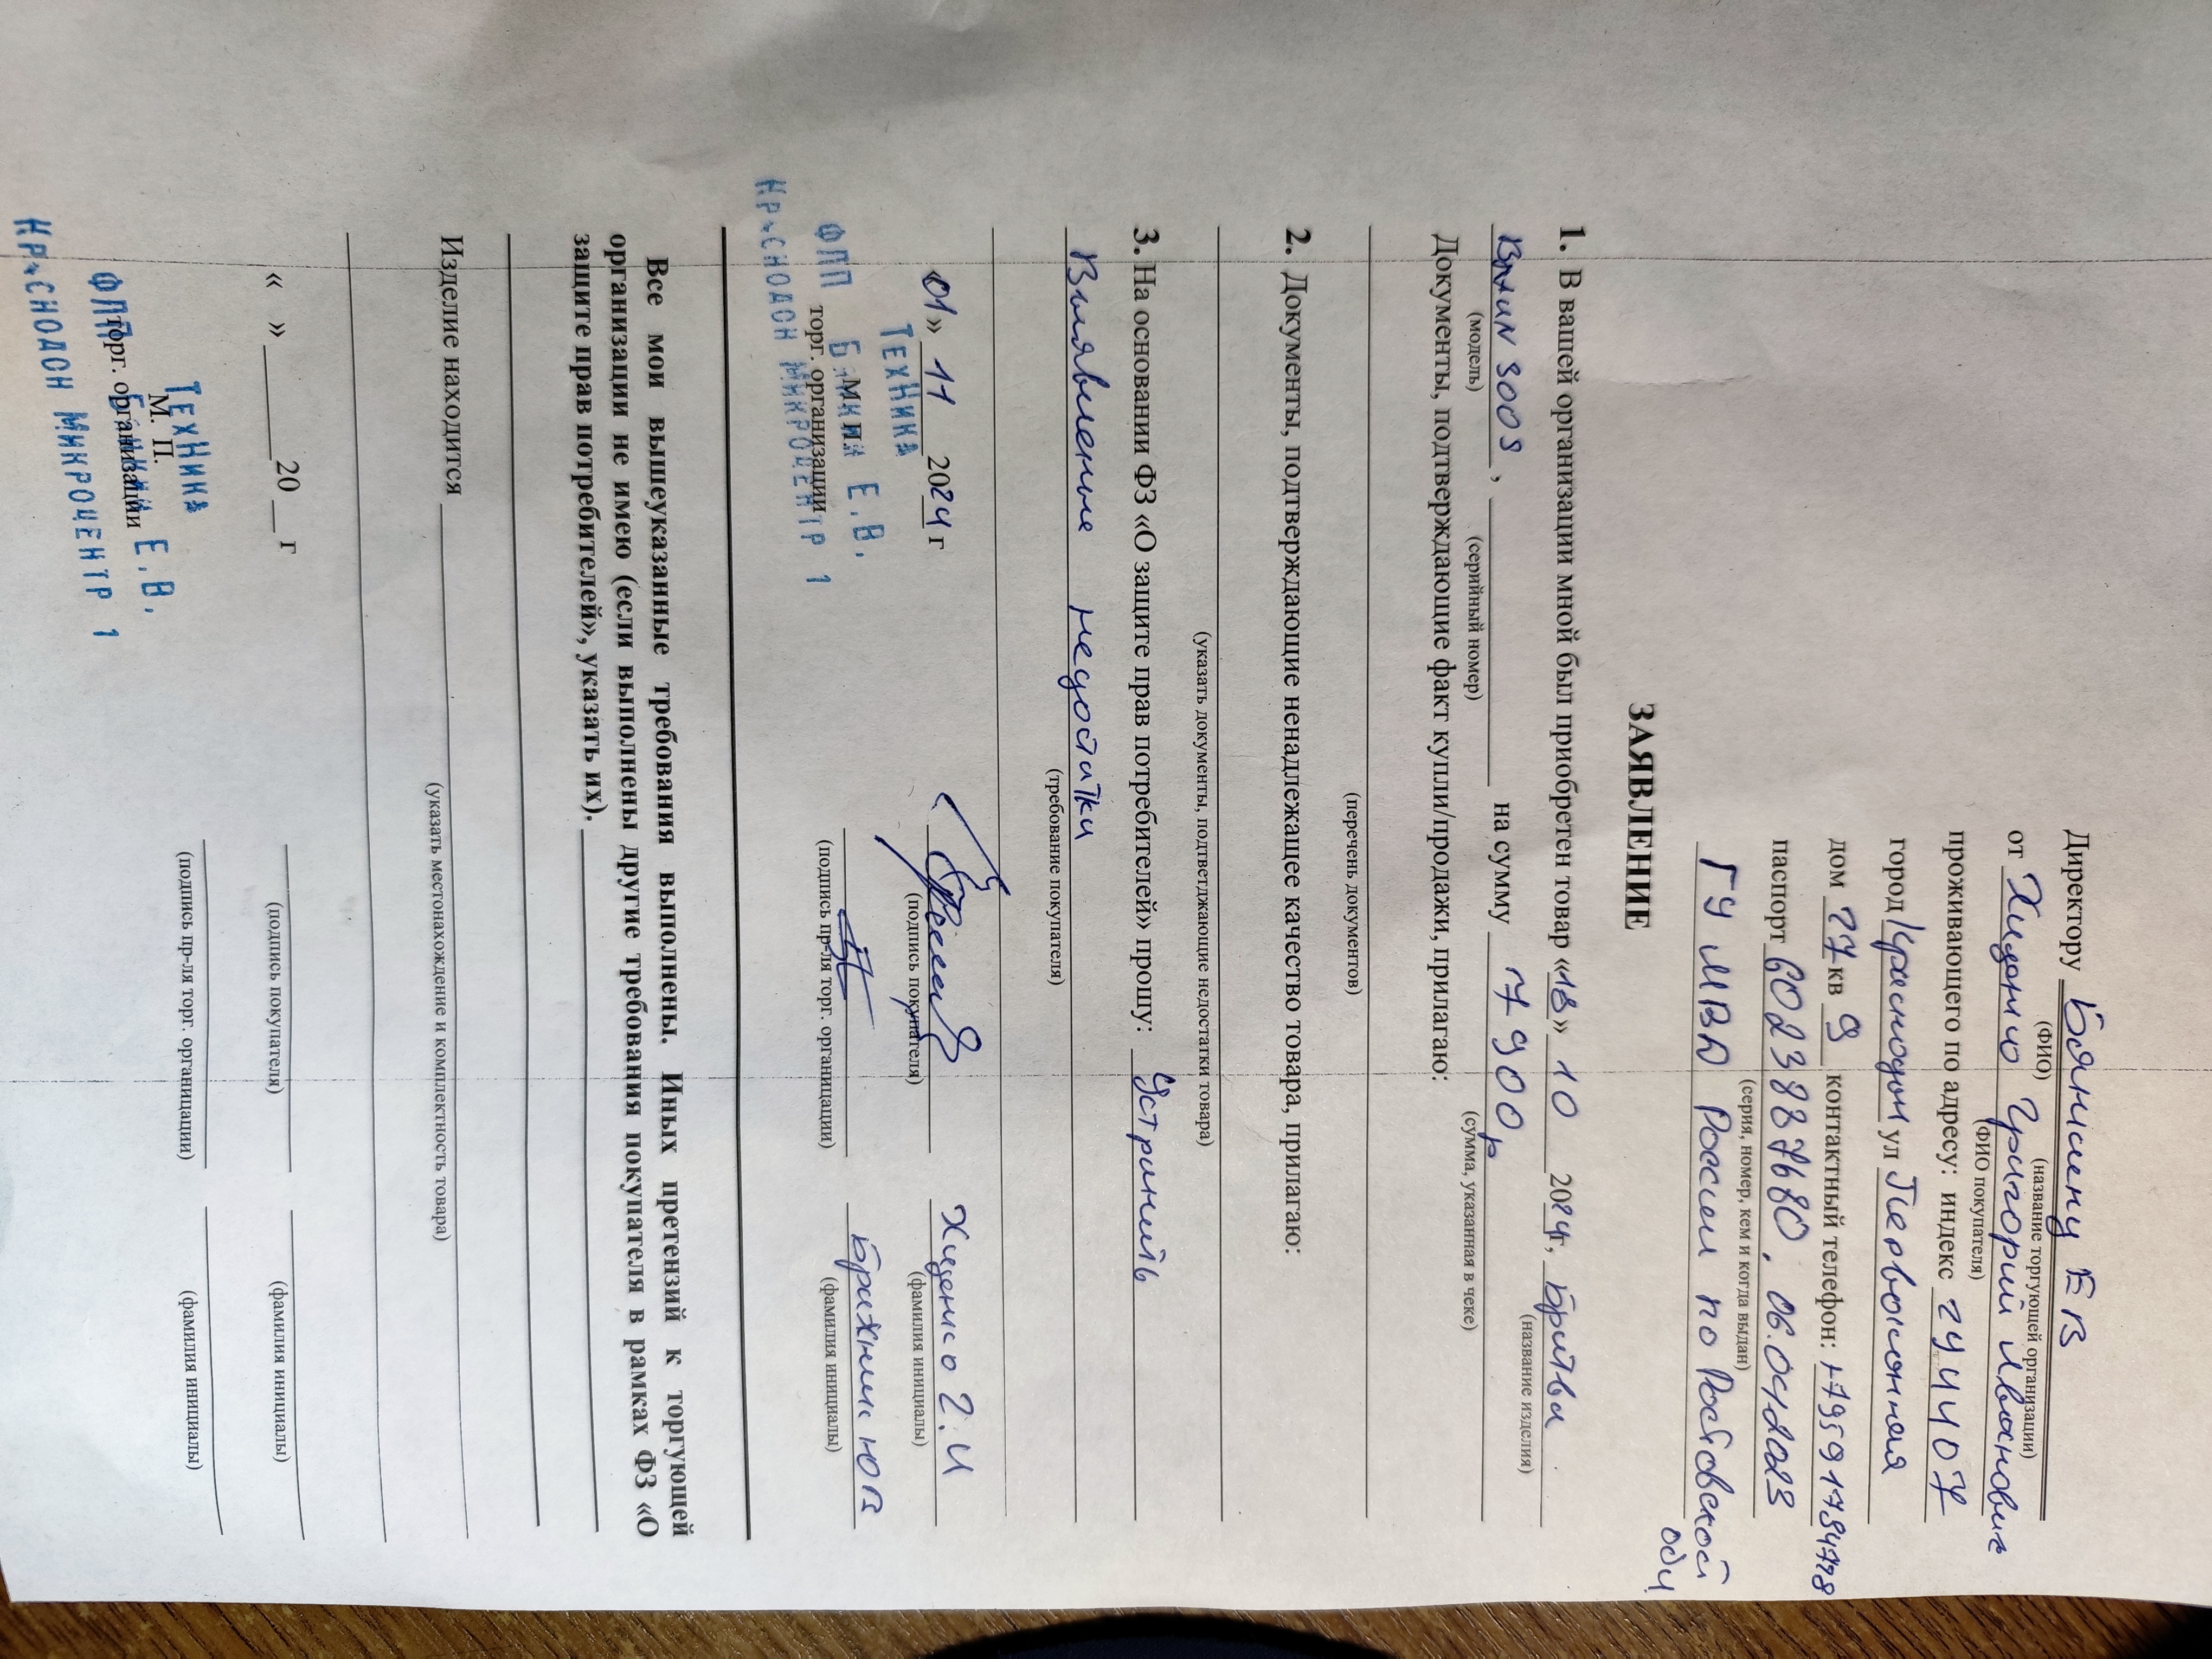 Директору Бянкину Е В
(ФИО) (название торгующей организации)
от Хиценко Григорий Иванович
(ФИО покупателя)
проживающего по адресу: индекс 294407
город Краснодон ул Первоконная
дом 27 кв 9 контактный телефон:
паспорт 6023887680. 06.04.2023
(серия, номер, кем и когда выдан)
ГУ МВД России по Ростовской обл
ЗАЯВЛЕНИЕ
1. В вашей организации мной был приобретен товар «18» 10 2024г, Бритва
(название изделия)
Braun 300s, на сумму 7900р
(модель) (серийный номер) (сумма, указанная в чеке)
Документы, подтверждающие факт купли/продажи, прилагаю:
(перечень документов)
2. Документы, подтверждающие ненадлежащее качество товара, прилагаю:
(указать документы, подтветджающие недостатки товара)
3. На основании ФЗ «О защите прав потребителей» прошу: Устранить
Выявленые недостатки
(требование покупателя)
«01» 11 2024 г Хиценко Г.И
(подпись покупателя) (фамилия инициалы)
ТехНика
ФЛП Бянкин Е.В.
Краснодон Микроцентр 1
М. П.
торг. организации
(подпись пр-ля торг. органицации) (фамилия инициалы)
Все мои вышеуказанные требования выполнены. Иных претензий к торгующей
организации не имею (если выполнены другие требования покупателя в рамках ФЗ «О
защите прав потребителей», указать их).
Изделие находится
(указать местонахождение и комплектность товара)
« » 20 г
(подпись покупателя) (фамилия инициалы)
ТехНика
М. П.
ФЛП Бянкин Е.В.
торг. организации
Краснодон Микроцентр 1
(подпись пр-ля торг. органицации) (фамилия инициалы)